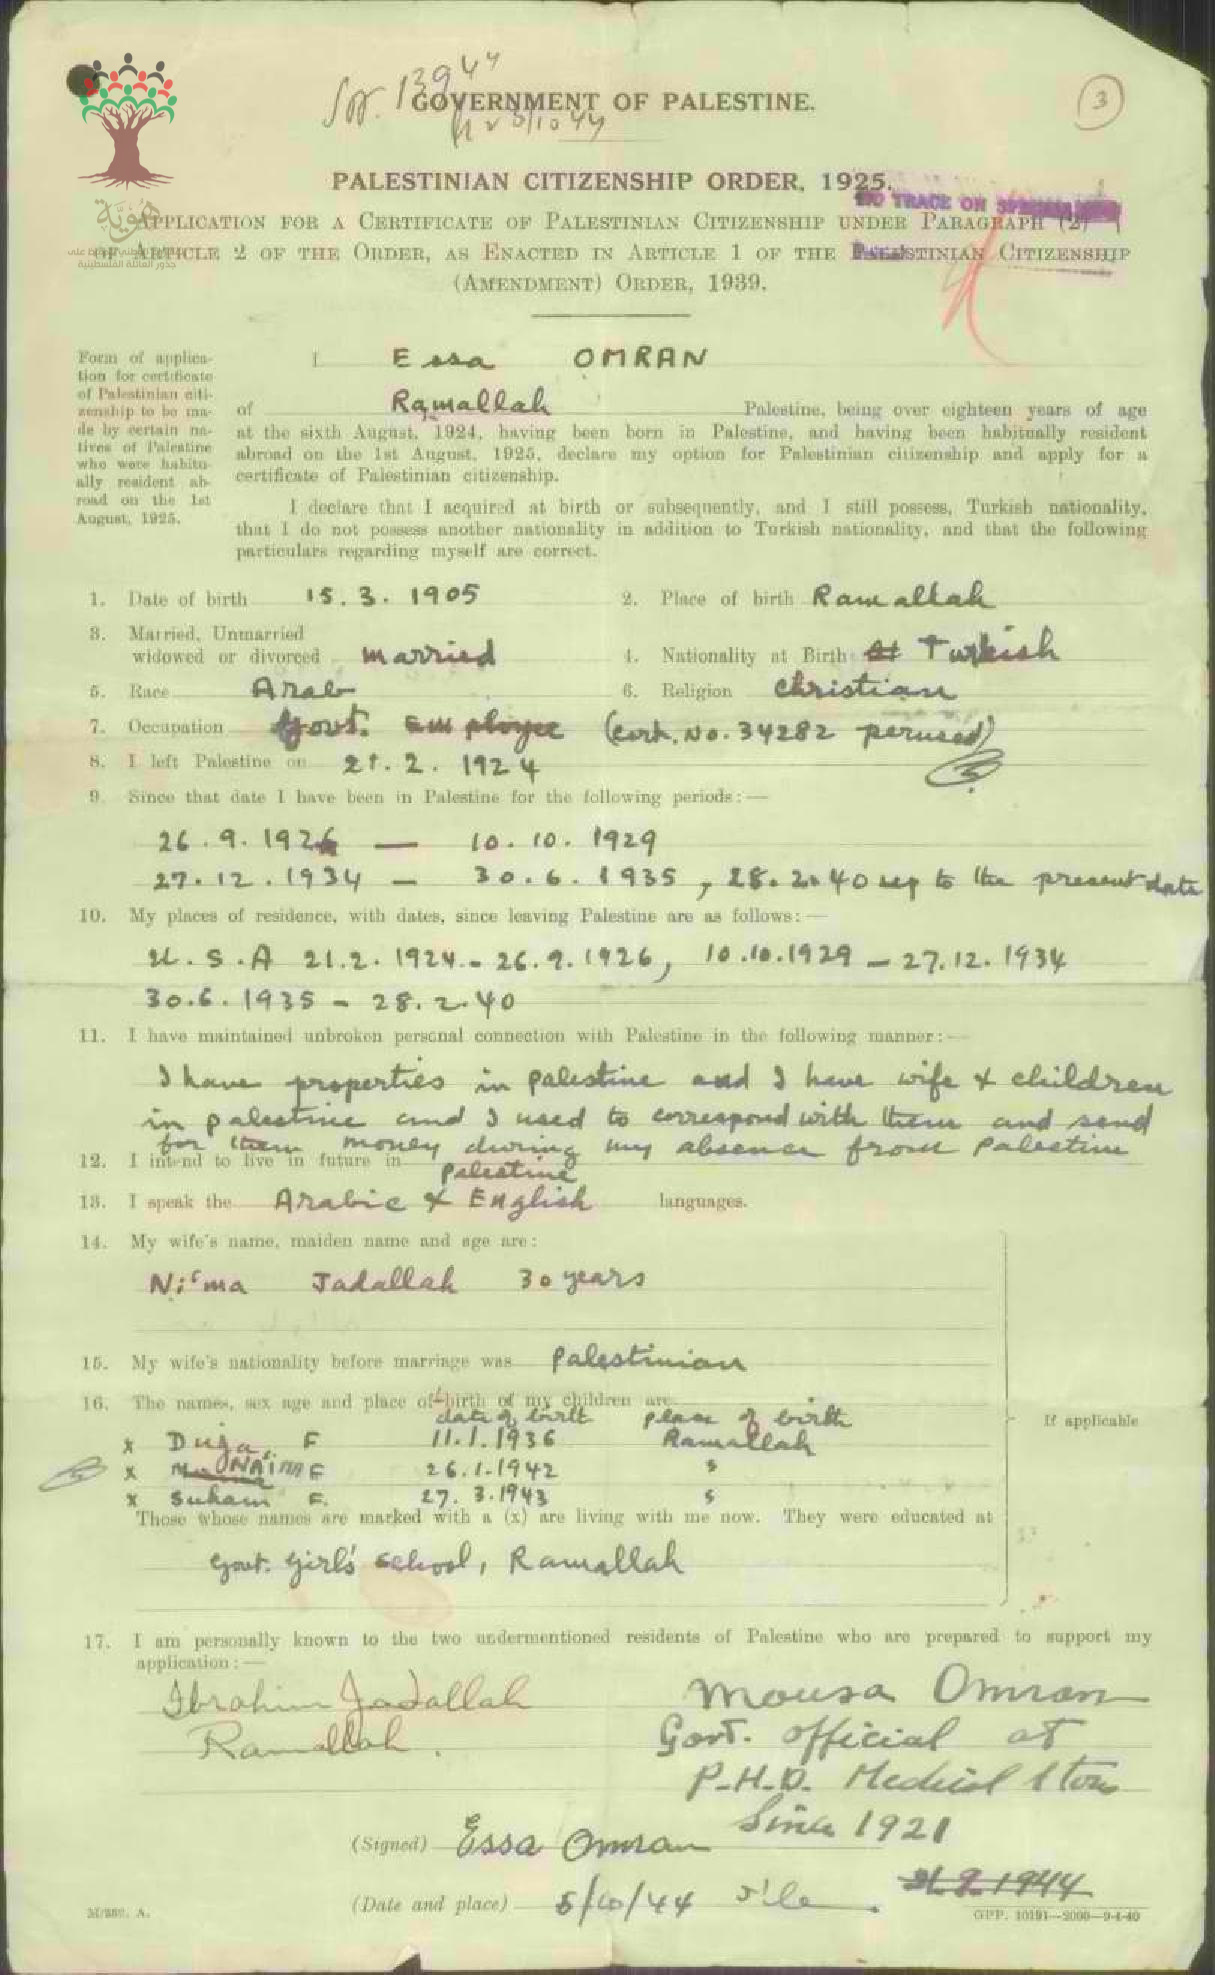 1394 44
5/10 44
GOVERNMENT OF PALESTINE.
3
PALESTINIAN CITIZENSHIP ORDER, 1925.
NO TRACE ON
هوية
جذور العائلة الفلسطينية
APPLICATION FOR A CERTIFICATE OF PALESTINIAN CITIZENSHIP UNDER PARAGRAPH (2)
OF ARTICLE 2 OF THE ORDER, AS ENACTED IN ARTICLE 1 OF THE PALESTINIAN CITIZENSHIP
(AMENDMENT) ORDER, 1939.
Form of applica-
tion for certificate
of Palestinian citi-
zenship to be ma-
de by certain na-
tives of Palestine
who were habitu-
ally resident ab-
road on the 1st
August, 1925.
I Essa OMRAN
of Ramallah Palestine, being over eighteen years of age
at the sixth August, 1924, having been born in Palestine, and having been habitually resident
abroad on the 1st August, 1925, declare my option for Palestinian citizenship and apply for a
certificate of Palestinian citizenship.
I declare that I acquired at birth or subsequently, and I still possess, Turkish nationality,
that I do not possess another nationality in addition to Turkish nationality, and that the following
particulars regarding myself are correct.
1. Date of birth 15.3.1905 2. Place of birth Ramallah
3. Married, Unmarried
widowed or divorced married 4. Nationality at Birth Turkish
5. Race Arab 6. Religion christian
7. Occupation Govt. Employee (cert. No. 34282 perused)
8. I left Palestine on 21.2.1924
9. Since that date I have been in Palestine for the following periods:—
26.9.1926 — 10.10.1929
27.12.1934 — 30.6.1935, 28.2.40 up to the present date
10. My places of residence, with dates, since leaving Palestine are as follows:—
U.S.A 21.2.1924 - 26.9.1926, 10.10.1929 — 27.12.1934
30.6.1935 - 28.2.40
11. I have maintained unbroken personal connection with Palestine in the following manner:—
I have properties in palestine and I have wife & children
in palestine and I used to correspond with them and send
for them money during my absence from palestine
12. I intend to live in future in palestine
13. I speak the Arabic & English languages.
14. My wife's name, maiden name and age are:
Ni'ma Jadallah 30 years
15. My wife's nationality before marriage was palestinian
16. The names, sex age and place of birth of my children are
date of birth place of birth
If applicable
x Duja F 11.1.1936 Ramallah
x NAIMA F 26.1.1942 "
x Suham F. 27.3.1943 "
Those whose names are marked with a (x) are living with me now. They were educated at
Govt. Girl's school, Ramallah
17. I am personally known to the two undermentioned residents of Palestine who are prepared to support my
application:—
Ibrahim Jadallah
Ramallah.
Mousa Omran
Govt. official at
P.H.D. Medical Store
Since 1921
(Signed) Essa Omran
(Date and place) 5/10/44 J'lem.
1944
M/889. A.
GPP. 10191—2000—9-4-40